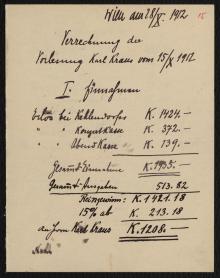 Wien am 28/X. 1912
15
Verrechnung der
Vorlesung Karl Kraus vom 15/X 1912
I. Einnahmen
Erlös bei Kehlendorfer K. 1424.—
" " Konzertkasse K. 372.—
" " Abendkasse K. 139.—
Gesamt-Einnahme K. 1935.—
Gesamt-Ausgaben 513.82
Reingewinn: K. 1421.18
15% ab K. 213.18
an Herrn Karl Kraus K. 1208.—